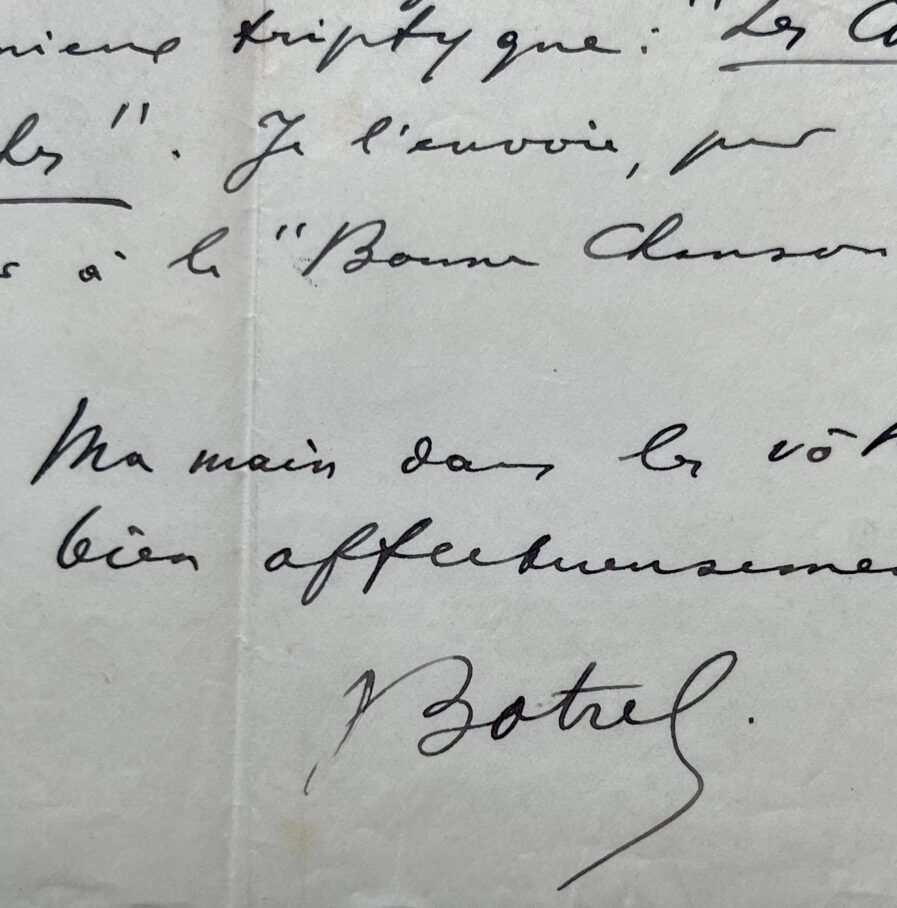 triptyque : "Les
". Je l'envoie, par
à la "Bonne Chanson
Ma main dans la vôt
bien affectueusemen
Botrel.